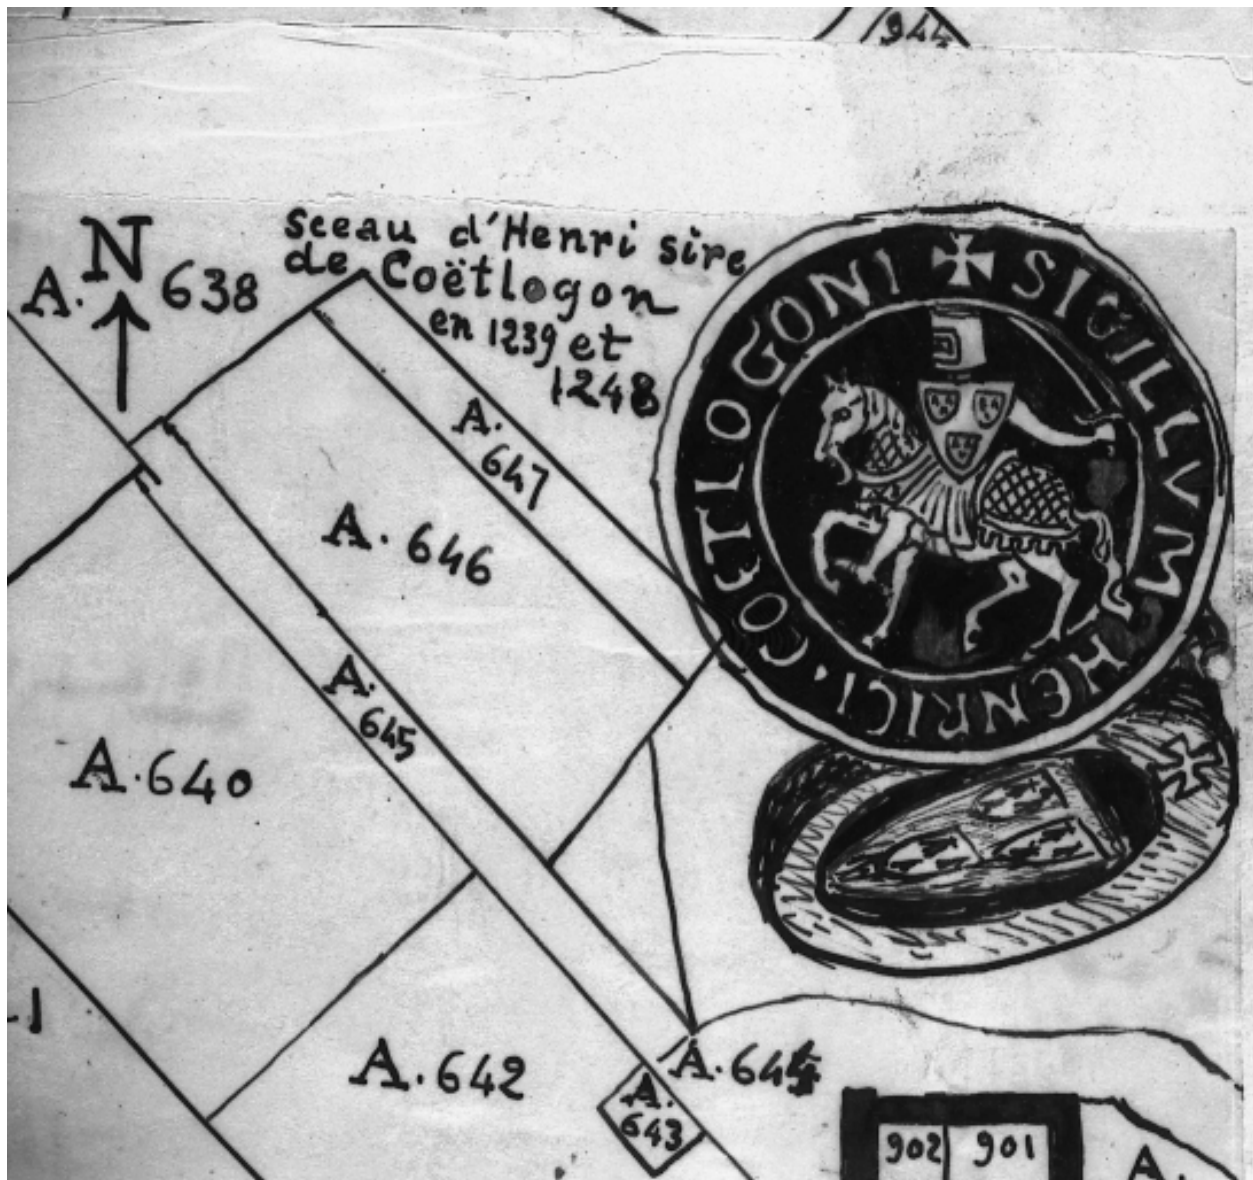 944
N
A. 638
sceau d'Henri sire
de Coëtlogon
en 1239 et
1248
✠ SIGILLVM HENRICI · COETLOGONI
A.
647
A. 646
A.
645
A. 640
A. 642
A. 644
A.
643
902 901
A.